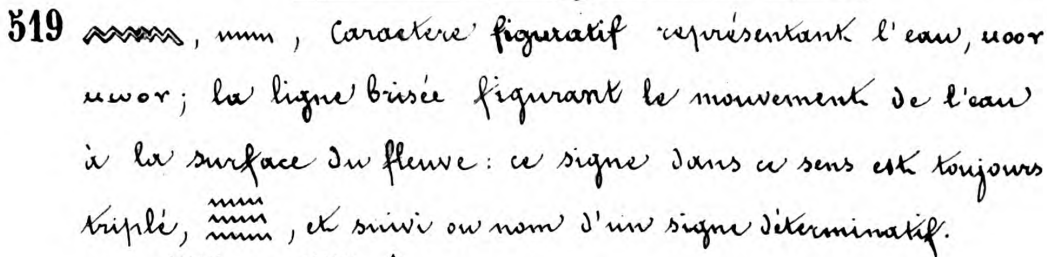 519 𓈖, 𓈖, Caractere figuratif représentant l'eau, ⲙⲟⲟⲩ
ⲙⲱⲟⲩ; la ligne brisée figurant le mouvement de l'eau
à la surface du fleuve: ce signe dans ce sens est toujours
triplé, 𓈗, et suivi ou nom d'un signe déterminatif.